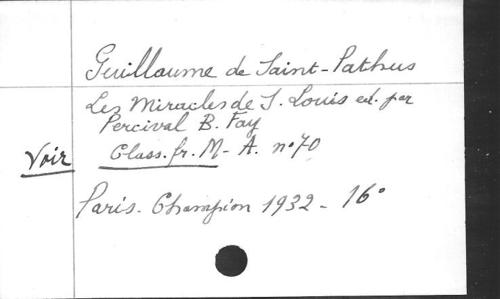 Guillaume de Saint-Pathus
Les Miracles de S. Louis ed. par
Percival B. Fay
Voir Class. fr. M-A. n°70
Paris. Champion 1932 - 16°